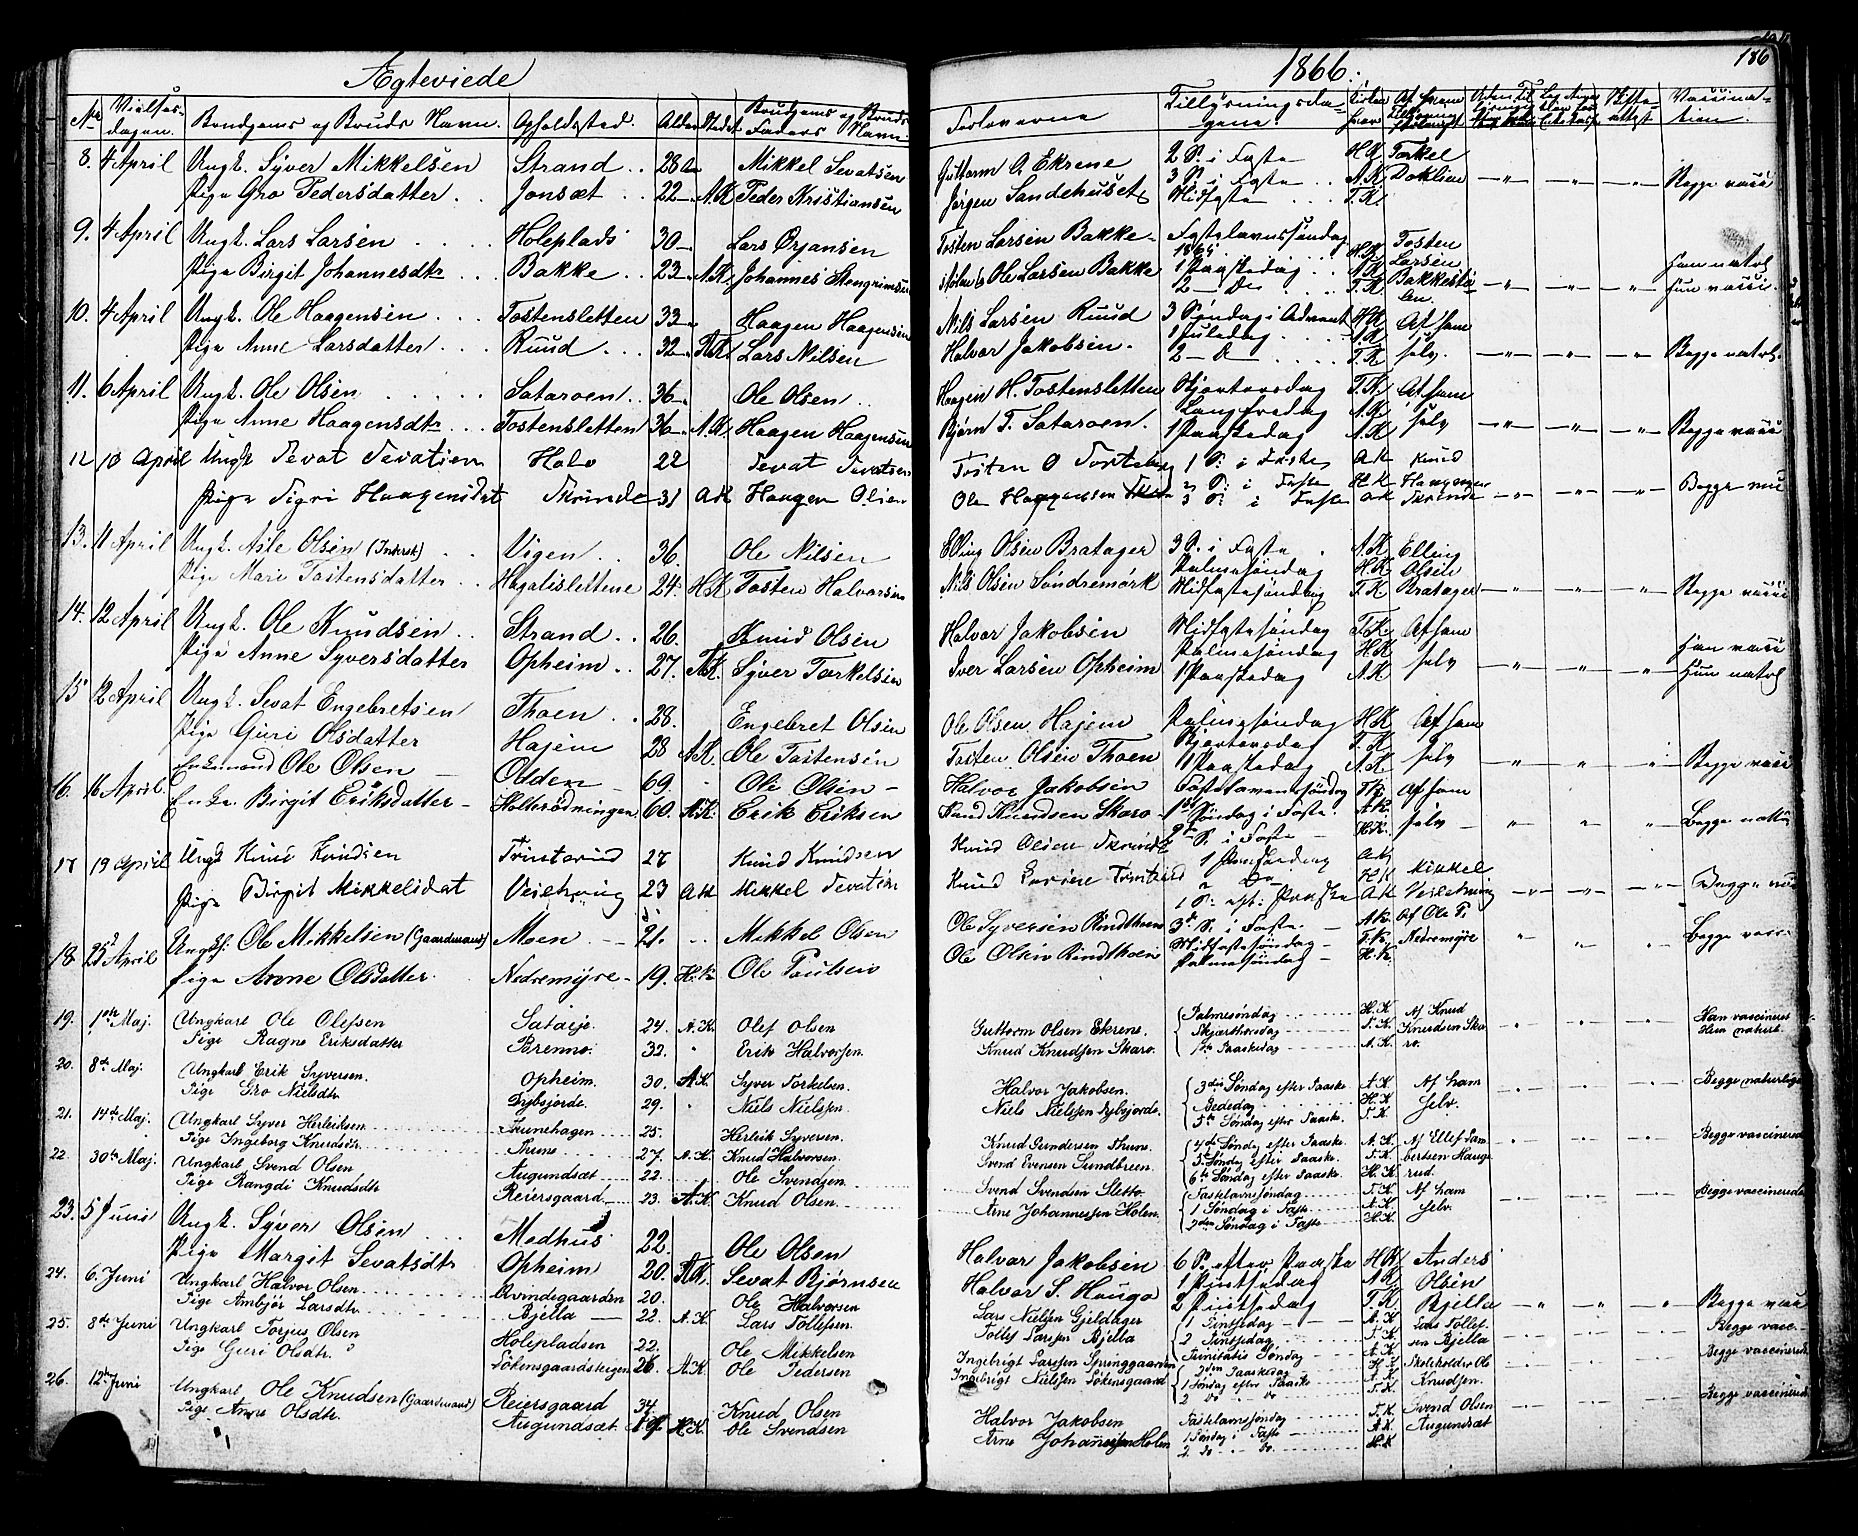 Ægteviede
1866.
186
No Vielses-dagen. Brudgoms og Bruds Navn. Opholdssted. Alder Stedet Brudgoms og Bruds Faders Navn.
Forloverne Tillysningsdagene. Vaccination.
8. 4 April Ungk. Syver Mikkelsen Strand 28 Mikkel Sevatsen
Pige Gro Pedersdatter Jonsæt 22 A.K Peder Kristiansen
9. 4 April Ungk. Lars Larsen Holeplads 30 Lars Ørjansen
Pige Birgit Johannesdtr Bakke 23 A.K. Johannes
10. 4 April Ungk. Ole Haagensen Tostensletten 33 Haagen Haagensen
Pige Anne Larsdatter Ruud 32 T.K. Lars Nilsen
11. 6 April Ungk. Ole Olsen Sataroen 36 Ole Olsen
Pige Anne Haagensdtr Tostensletten 36 A.K. Haagen Haagensen
12 10 April Ungk Sevat Sevatsen Hole 22 Sevat Sevatsen
Pige Sigri Haagensdat Skrinde 31 A.K Haagen Olsen
13. 11 April Ungk. Asle Olsen (Inderst) Vigen 36. Ole Nilsen
Pige Mari Tostensdatter Hagalislettene 24. H.K Tosten Halvorsen
14. 12 April Ungk. Ole Knudsen Strand 26. Knud Olsen
Pige Anne Syversdatter Opheim 27. T.K. Syver Torkelsen
15 12 April Ungk. Sevat Engebretsen Thoen 28. Engebret Olsen
Pige Guri Olsdatter Hajem 28 A.K. Ole Tostensen
16. 16 April Enkemand Ole Olsen Odden 69. Ole Olsen
Enke Birgit Eriksdatter Halbrødningen 60. A.K. Erik Eriksen
17 19 April Ungk Knud Knudsen Trinterud 27 Knud Knudsen
Pige Birgit Mikkelsdat Veslehaug 23 A.K Mikkel Sevatsen
18 25 April Ungk. Ole Mikkelsen (Gaardmand) Moen 21. Mikkel Olsen
Pige Anne Olsdatter Nedremyre 19. H.K Ole Paulsen
19. 1ste Maj. Ungkarl Ole Olefsen Sataøje 24. A.K. Olef Olsen
Pige Ragne Eriksdatter Brenno. 32. Erik Halvorsen.
20. 8de Maj. Ungkarl Erik Syversen. Opheim. 30. A.K. Syver Torkelsen.
Pige Gro Nielsdtr. Dybsjorde. 29. Niels Nielsen.
21. 14de Maj. Ungkarl Syver Herleiksen Thunehagen 25. Herleik Syversen.
Pige Ingeborg Knudsdtr. Thune 27. A.K. Knud Halvorsen.
22 30te Maj. Ungkarl Svend Olsen Augundsæt 22. Ole Svendsen
Pige Rangdi Knudsdtr Reiersgaard 23. A.K Knud Olsen.
23. 5 Juni Ungk. Syver Olsen Medhus 22. Ole Olsen
Pige Margit Sevatsdtr Opheim 20. A.K. Sevat Bjørnsen
24. 6. Juni Ungkarl Halvor Olsen Arendegaarden 20. Ole Halvorsen
Pige Ambjør Larsdtr. Bjella 22. A.K. Lars Tollefsen.
25. 8de Juni Ungkarl Torjus Olsen Holepladsen 22. Ole Mikkelsen
Pige Guri Olsdtr. Løkensgaardsteigen 26. A.K. Ole Pedersen
26. 12te Juni Ungkarl Ole Knudsen (Gaardmand) Reiersgaard 34. Knud Olsen
Pige Anne Olsdtr. Augundsæt 19 H.K. Ole Svendsen
Guttorm O. Ekrene 2 S. i Faste H.K Torkel
Jørgen Sandehuset 3 S. i Faste A.K Doklien Begge vacci
Midfaste T.K
Tosten Larsen Bakke Fastelavnssøndag Tosten
1865 H.K. Larsen Han natrl
Ole Larsen Bakke 1 Paaskedag A.K Hun vacci.
2 Do T.K
Nils Larsen Ruud 3 Søndag i Advent H.K Af ham
Halvor Jakobsen. 1 Juledag A.K selv. Begge natrl.
2 D T.K
Haagen H. Tostensletten Skjærtorsdag T.K. Af ham
Bjørn T. Sataroen. Langfredag A.K selv Begge vacci
1 Paaskedag A.K
Tosten O 1 S: i Faste A.K Knud
Ole Haagensen 2 S: i Faste H.K Haagensen Begge
3 S: i Faste A.K Skrinde
Elling Olsen Bratager 3 S. i Faste A.K Elling
Nils Olsen Søndremørk Palmesøndag H.K Olsen
Midfastesøndag T.K Bratager Begge vacci
Halvor Jakobsen Midfastesøndag T.K Af ham
Iver Larsen Opheim Palmesøndag H.K selv Han vacci
1 Paaskedag A.K Hun natrl
Ole Olsen Hajem Palmesøndag H.K Af ham
Tosten Olsen Thoen Skjærtorsdag T.K. selv Begge vacci
1 Paaskedag A.K
Halvor Jakobsen Fastelavnssøndag T.K Af ham
Knud Knudsen Skaro 1ste Søndag i Faste. A.K. selv Begge
2den S. i Faste H.K.
Knud Olsen Skrinde 1 Paaskedag A.K
Knud 2 Do H.K Mikkel
1 S: eft: Paaske A.K Veslehaug Begge
Ole Syversen Rindthoen 3de S. i Faste A.K. Af Ole P.
Ole Olsen Rindthoen Midfastesøndag T.K. Nedremyre Begge vacc
Palmesøndag H.K.
Guttorm Olsen Ekrene. Palmesøndag H.K. Af Knud Han vaccineret
Skjærthorsdag T.K. Knudsen Ska- Hun naturl.
Knud Knudsen Skaro. 1ste Paaskedag A.K. ro.
Halvor Jakobsen. 3die Søndag efter Paaske A.K. Af ham Begge naturlige
Niels Nielsen Dybsjorde. Bededag H.K. selv.
5te Søndag efter Paaske. T.K
Knud Gundersen Thune. 4de Søndag efter Paaske. A.K. Af Ellef Lam- Begge vaccinerede
Svend Evensen Sundbreen. 5te Søndag efter Paaske. T.K. bertsen Hauge-
6te Søndag efter Paaske H.K. rud.
Svend Svendsen Sletto Fastelavnssøndag T.K. Af ham Begge vaccinerede
Arne Johannessen Holen. 1 Søndag i Faste A.K. selv.
2den Søndag i Faste H.K.
Halvor Jakobsen 6 S. efter Paaske H.K Anders
Halvor S. Hauga 1 Pintsedag A.K Olsen
2 Pintsedag T.K Bjella Begge vacci
Lars Nielsen Gjeldager 1 Pintsedag A.K Lars Tollef- Begge vacc.
Tollef Larsen Bjella 2 Pintsedag T.K. sen Bjella
Trinitatis Søndag A.K.
Ingebrigt Larssen Springgaarden 2den Paaskedag H.K. Skoleholder Ole Begge vaccinerede
Ingebrigt Nielsen Løkensgaard 1 Søndag efter Paaske A.K. Knudsen.
2 do do T.K.
Halvor Jakobsen Fastelavnssøndag T.K. Svend Olsen Begge vaccinerede
Arne Johannessen Holen 1 Søndag i Faste A.K Augundsæt
2 do do. H.K